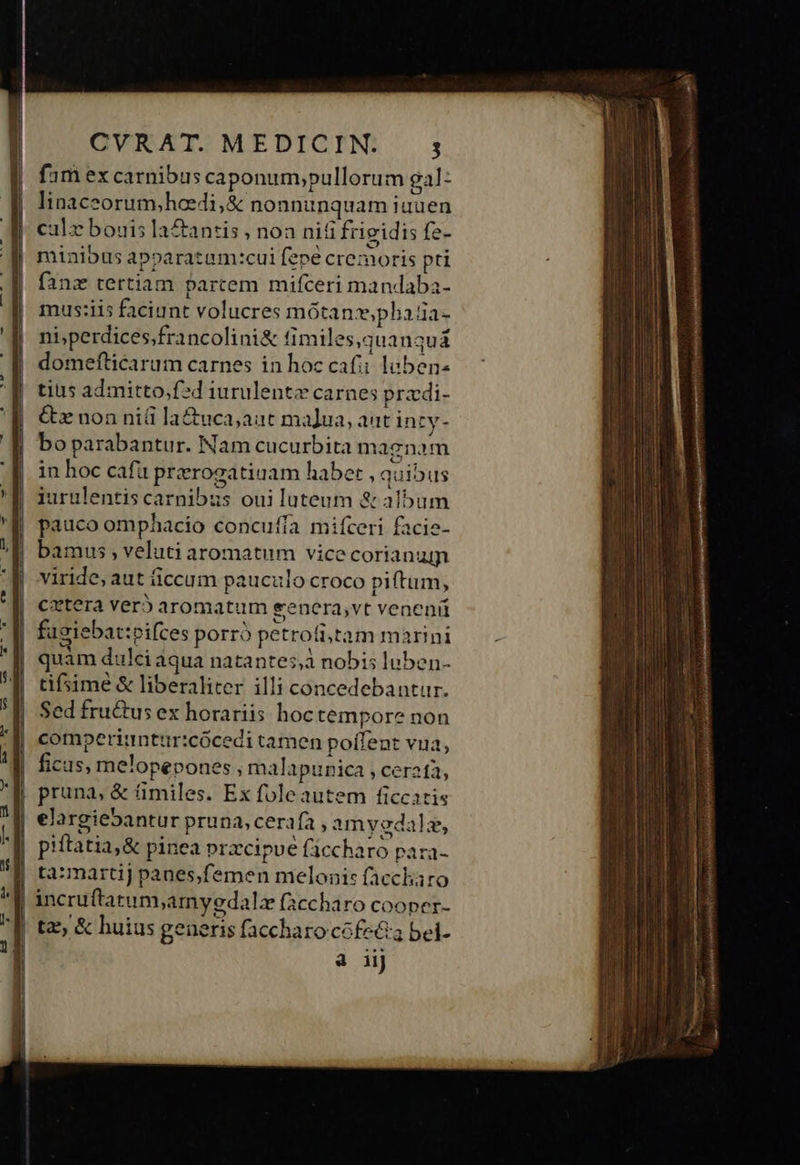 CVRAT. MEDICIN. 3
ſam ex carnibus caponum, pullorum gal-
linaceorum, hœdi, & nonnunquam iuuen
culæ bouis lactantis, non niſi frigidis ſe-
minibus apparatam: cui ſepè cremoris pti
ſanæ tertiam partem miſceri mandaba-
mus: iis faciunt volucres mōtanæ, phaſia-
ni, perdices, francolini & ſimiles, quanquā
domeſticarum carnes in hoc caſu luben-
tius admitto, ſed iurulentæ carnes prædi-
ctæ non niſi lactuca, aut malua, aut inty-
bo parabantur. Nam cucurbita magnam
in hoc caſu prærogatiuam habet, quibus
iurulentis carnibus oui luteum & album
pauco omphacio concuſſa miſceri facie-
bamus, veluti aromatum vice corianum
viride, aut ſiccum pauculo croco piſtum,
cætera verò aromatum genera, vt venenū
fugiebat: piſces porrò petroſi, tam marini
quàm dulci aqua natantes, à nobis luben-
tiſsimè & liberaliter illi concedebantur.
Sed fructus ex horariis hoc tempore non
comperiuntur: cōcedi tamen poſſent vua,
ficus, melopepones, malapunica, ceraſa,
pruna, & ſimiles. Ex ſole autem ſiccatis
elargiebantur pruna, ceraſa, amygdalæ,
piſtatia, & pinea præcipuè ſaccharo para-
ta: martij panes, ſemen melonis ſaccharo
incruſtatum, amygdalæ ſaccharo cooper-
tæ, & huius generis ſaccharo cōfecta bel-
a iij